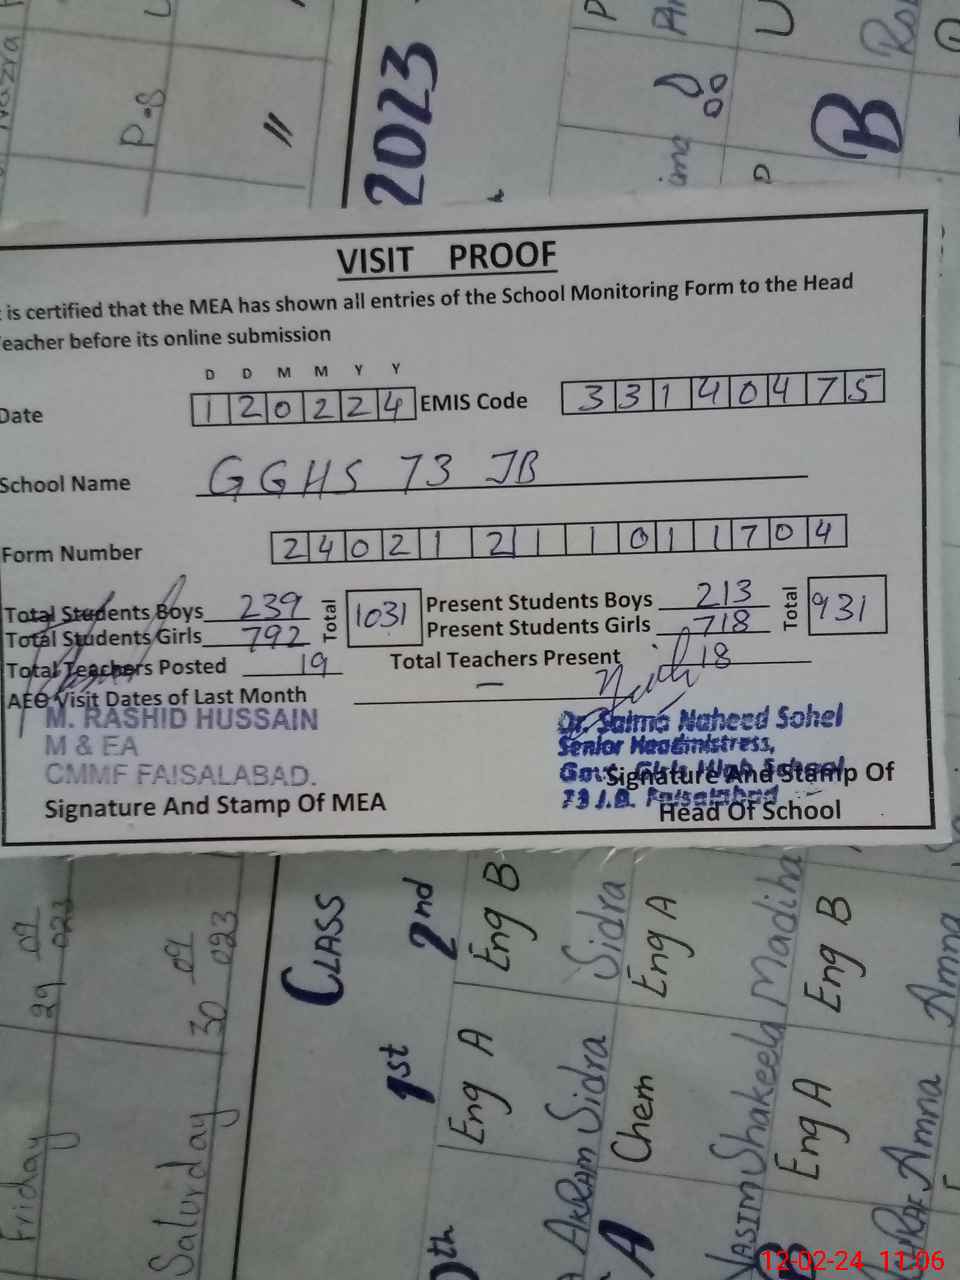 2023
P.S
B
VISIT PROOF
is certified that the MEA has shown all entries of the School Monitoring Form to the Head
eacher before its online submission
D D M M Y Y
Date 1 2 0 2 2 4 EMIS Code 3 3 1 4 0 4 7 5
School Name GGHS 73 JB
Form Number 2 4 0 2 1 2 1 1 0 1 1 7 0 4
Total Students Boys 239 Total 1031 Present Students Boys 213 Total 931
Total Students Girls 792 Present Students Girls 718
Total Teachers Posted 19 Total Teachers Present 18
AEO Visit Dates of Last Month —
M. RASHID HUSSAIN
M & EA
CMMF FAISALABAD.
Signature And Stamp Of MEA
Dr. Saima Naheed Sohel
Senior Headmistress,
Govt. Girls High School
73 J.B. Faisalabad
Signature And Stamp Of
Head Of School
Friday 29 09 023
Saturday 30 09 023
CLASS
1st 2nd
Eng A Eng B
AKRAM Sidra Sidra
A Chem Eng A
Shakeela Madiha
Eng A Eng B
Amna Amna
12-02-24 11:06